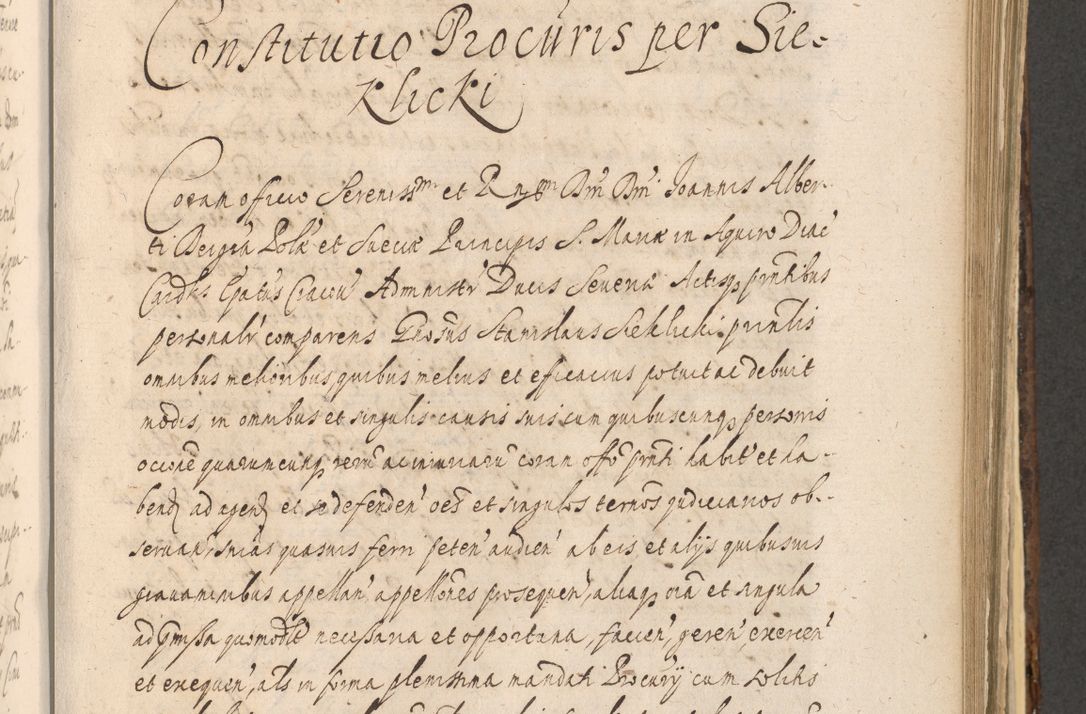 Constitutio Procuris per Sie-
klicki
Coram officio Sereniss^mi et R^mi Dni Dni Joannis Alber-
ti Dei gra Pol& et Sueciæ Principis S. Mariæ in Aquiro Diac
Cardlis Epatus Cracou' Administr' Ducis Seueriæ Actisq3 pntibus
personalr comparens Gnosus Stanislaus Sieklicki principalis
omnibus melioribus, quibus melius et eficacius potuit ac debuit
modis, in omnibus et singulis causis suis cum quibuscunq3 personis
occone quarumcunq3 rerum ac iniuriarum coram offo pnti habit' et ha-
bend ad agend et se defenden' oes et singulos terminos judiciarios ob-
seruan, snias quasuis ferri peten' audien' ab eis, et alijs quibusuis
grauaminibus appellan', appellones prosequen', aliaq3 oia et singula
ad pmissa quomodolt necessaria et opportuna, facien', geren', exercen'
et exequen', als in forma plenissima mandati Procurij cum solitis